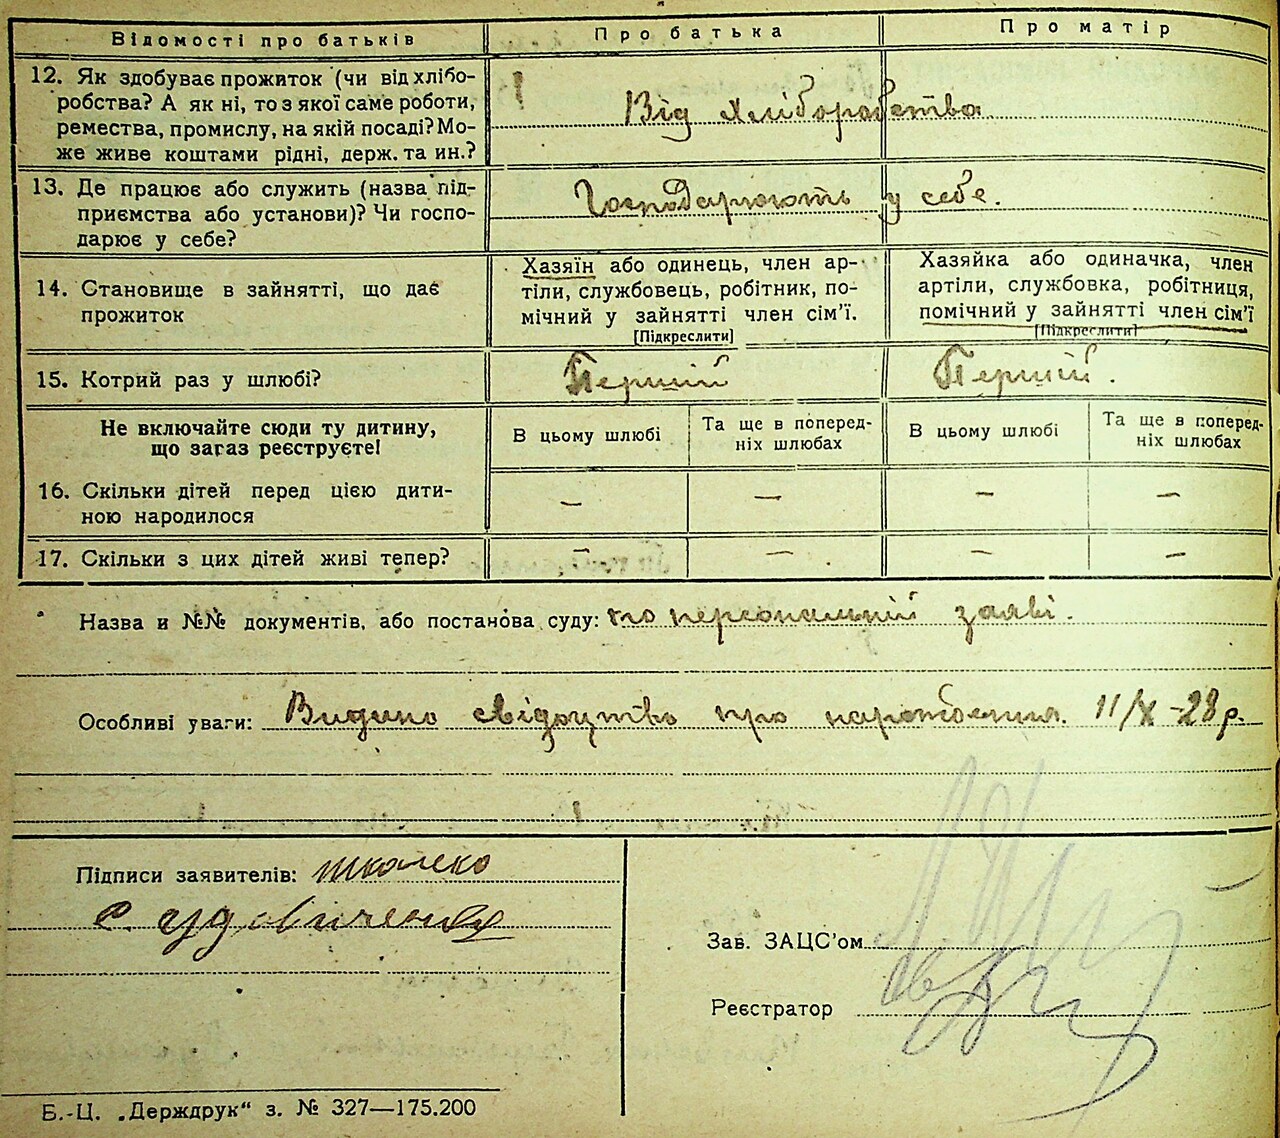 Відомості про батьків
Про батька
Про матір
12. Як здобуває прожиток (чи від хлібо-
робства? А як ні, то з якої саме роботи,
ремества, промислу, на якій посаді? Мо-
же живе коштами рідні, держ. та ин.?
Від хліборобства
13. Де працює або служить (назва під-
приємства або установи)? Чи госпо-
дарює у себе?
Господарюють у себе.
14. Становище в зайнятті, що дає
прожиток
Хазяїн або одинець, член ар-
тіли, службовець, робітник, по-
мічний у зайнятті член сім'ї.
[Підкреслити]
Хазяйка або одиначка, член
артіли, службовка, робітниця,
помічний у зайнятті член сім'ї
[Підкреслити]
15. Котрий раз у шлюбі?
Перший
Перший.
Не включайте сюди ту дитину,
що загаз реєструєте!
В цьому шлюбі
Та ще в поперед-
ніх шлюбах
В цьому шлюбі
Та ще в поперед-
ніх шлюбах
16. Скільки дітей перед цією дити-
ною народилося
— — — —
17. Скільки з цих дітей живі тепер?
— — — —
Назва и №№ документів, або постанова суду: по персональній заяві.
Особливі уваги: Видано свідоцтво про народження. 11/X -28 р.
Підписи заявителів:
Зав. ЗАЦС'ом
Реєстратор
Б.-Ц. „Держдрук“ з. № 327—175.200